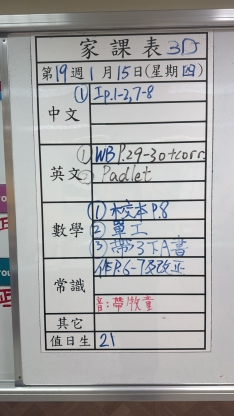 家課表3D
第19週1月15日(星期四)
中文
① Ip.1-3,7-8
英文
① WB P.29-30+corr
② Padlet
數學
(1) 校本P.8
(2) 單工
(3) 帶3下A書
常識
作P.6-7及改正
音:帶牧童
其它
值日生 21